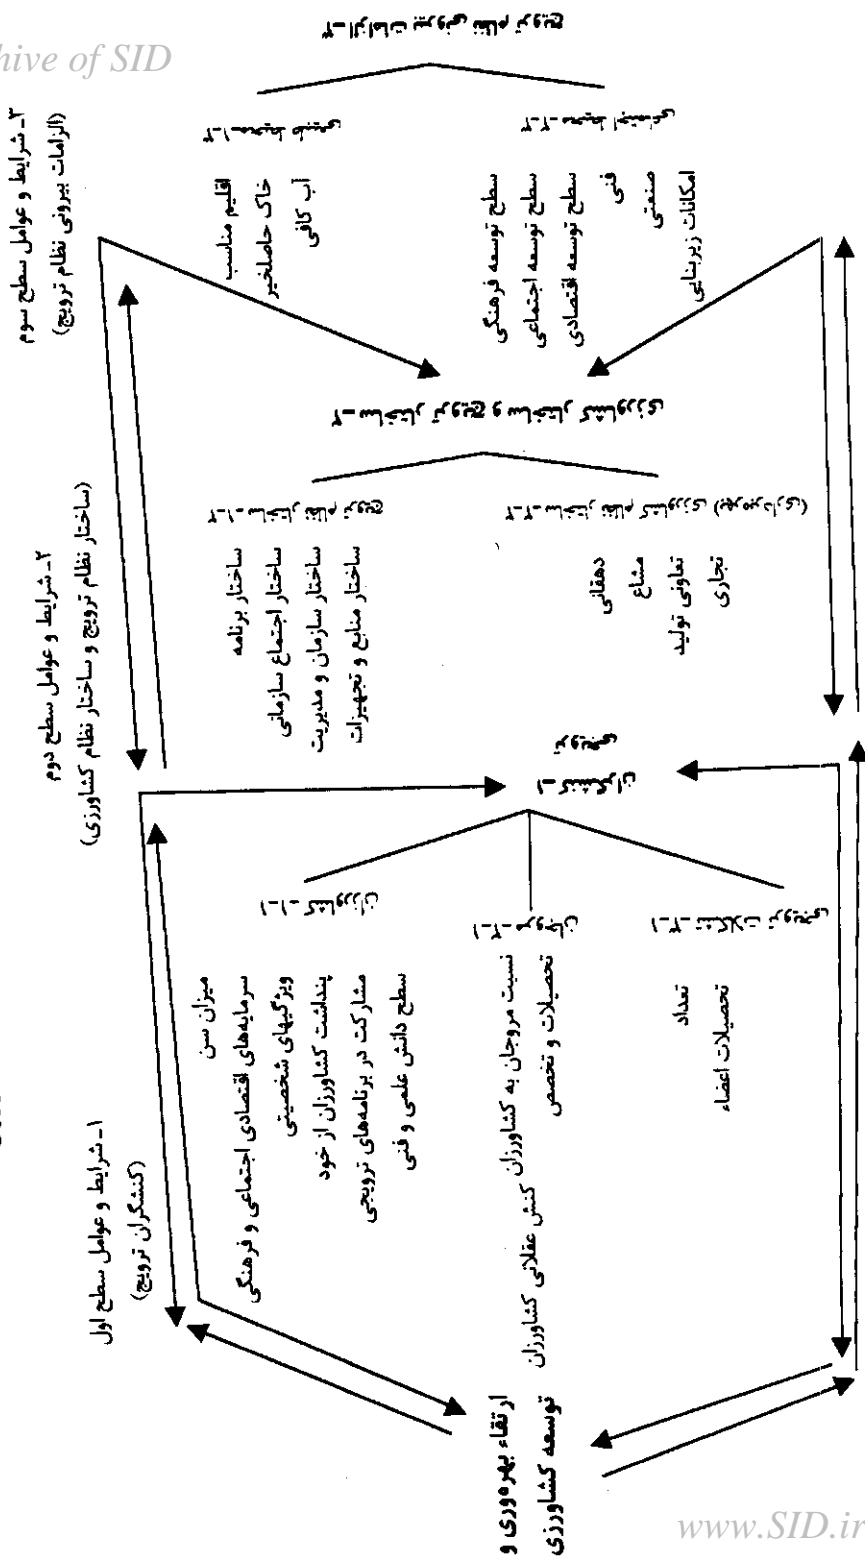 Archive of SID
۳ـ شرایط و عوامل سطح سوم
(الزامات بیرونی نظام ترویج)
۳ـ الزامات بیرونی نظام ترویج
۳ـ۱ـ محیط طبیعی
اقلیم مناسب
خاک حاصلخیز
آب کافی
۳ـ۲ـ محیط اجتماعی
سطح توسعه فرهنگی
سطح توسعه اجتماعی
سطح توسعه اقتصادی
فنی
صنعتی
امکانات زیربنایی
۲ـ شرایط و عوامل سطح دوم
(ساختار نظام ترویج و ساختار نظام کشاورزی)
۲ـ ساختار ترویج و ساختار کشاورزی
۲ـ۱ـ ساختار نظام ترویج
ساختار برنامه
ساختار اجتماع سازمانی
ساختار سازمان و مدیریت
ساختار منابع و تجهیزات
۲ـ۲ـ ساختار نظام کشاورزی (بهره‌برداری)
دهقانی
مشاع
تعاونی تولید
تجاری
۱ـ شرایط و عوامل سطح اول
(کنشگران ترویج)
۱ـ کنشگران
ترویجی
۱ـ۱ـ کشاورزان
میزان سن
سرمایه‌های اقتصادی اجتماعی و فرهنگی
ویژگیهای شخصیتی
پنداشت کشاورزان از خود
مشارکت در برنامه‌های ترویجی
سطح دانش علمی و فنی
۱ـ۲ـ مروجان
نسبت مروجان به کشاورزان
تحصیلات و تخصص
کنش عقلانی کشاورزان
۱ـ۳ـ تشکلات ترویجی
تعداد
تحصیلات اعضاء
ارتقاء بهره‌وری و
توسعه کشاورزی
www.SID.ir